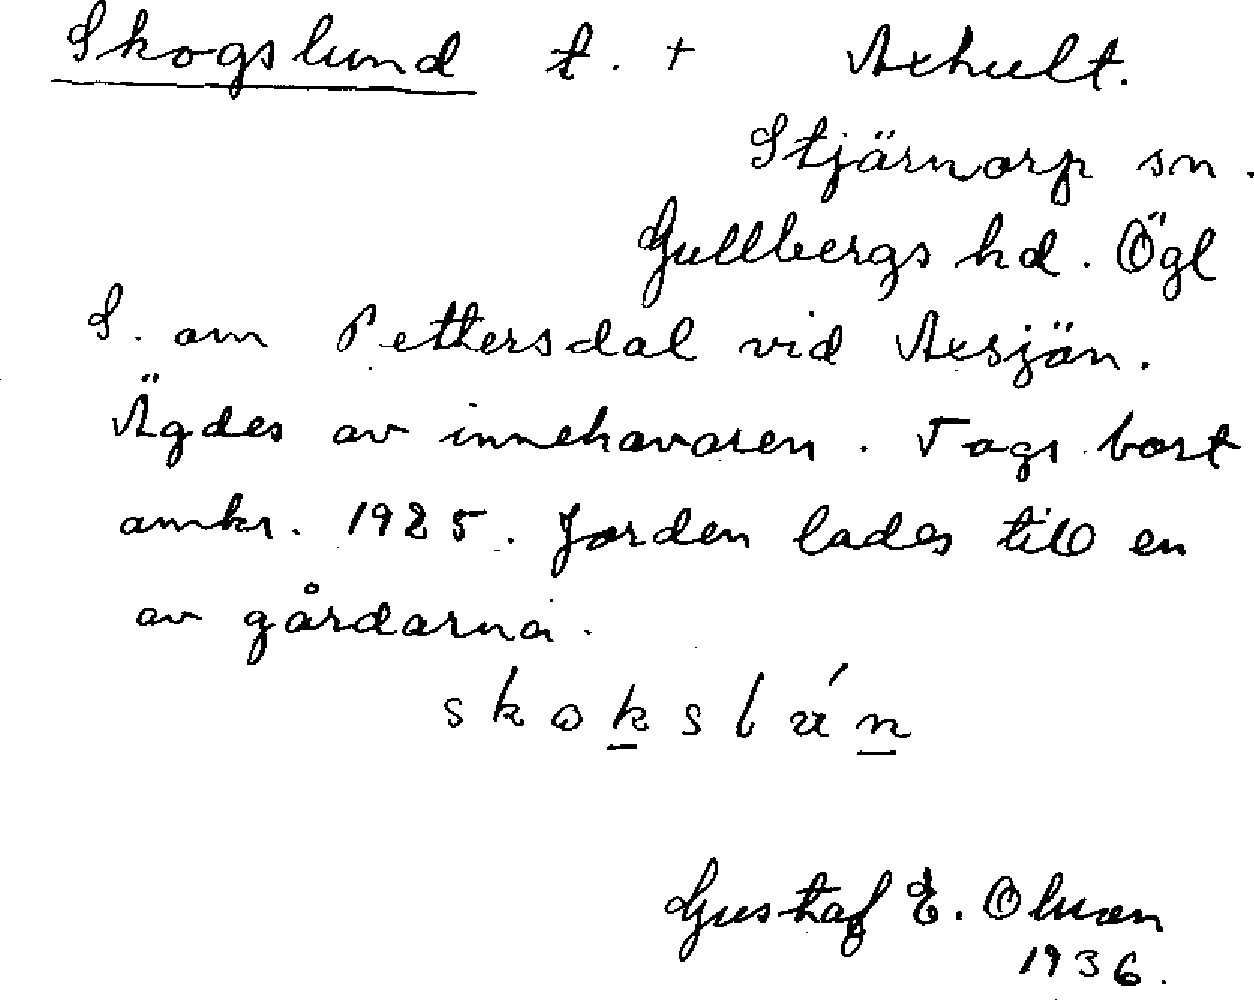 Skogslund t. + Axhult.
Stjärnorp sn.
Gullbergs hd. Ögl
S. om Pettersdal vid Axsjön.
Ägdes av innehavaren. Togs bort
omkr. 1925. Jorden lades till en
av gårdarna.
skokslún
Gustaf E. Olsson
1936.